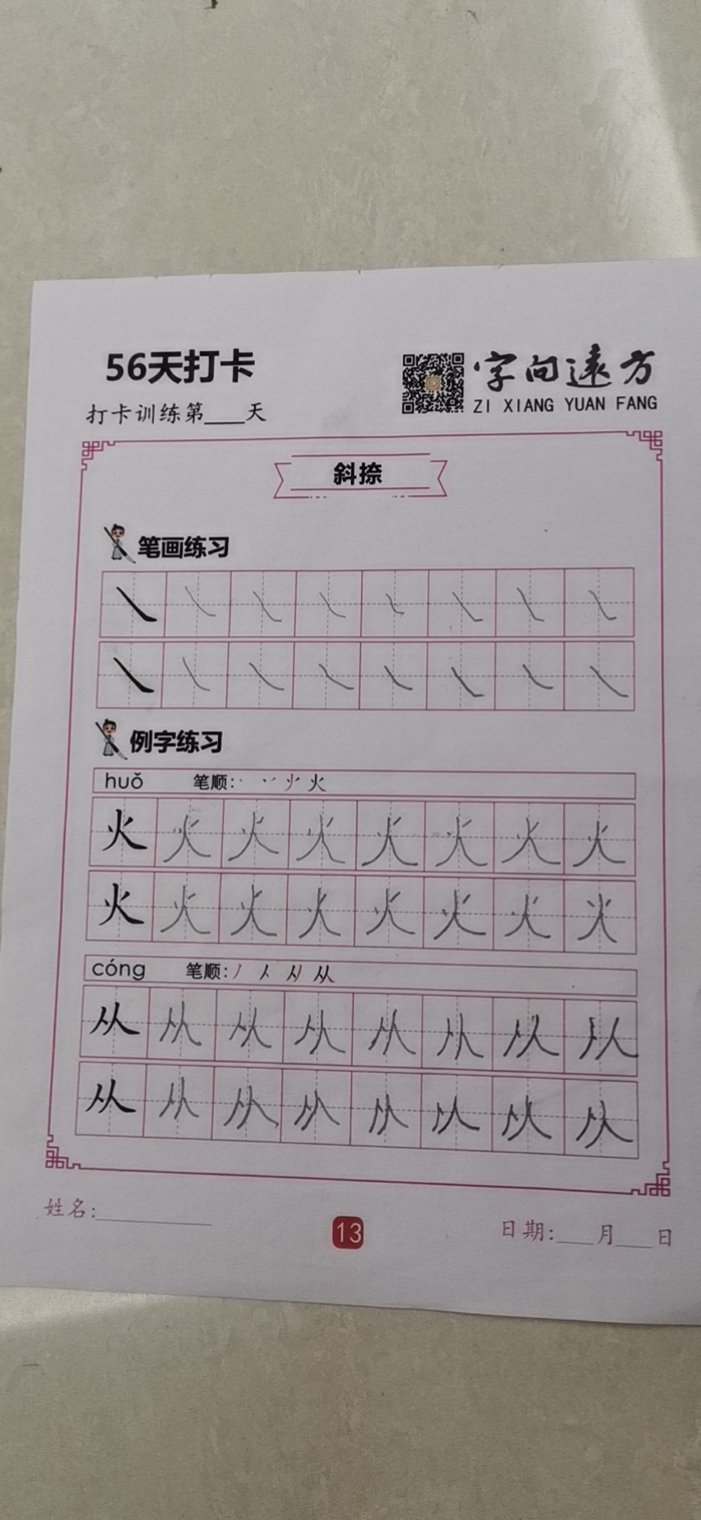 56天打卡
字向远方
打卡训练第____天
ZI XIANG YUAN FANG
斜捺
笔画练习
㇏ ㇏ ㇏ ㇏ ㇏ ㇏ ㇏ ㇏
㇏ ㇏ ㇏ ㇏ ㇏ ㇏ ㇏ ㇏
例字练习
huǒ 笔顺: 丶 丷 火
火 火 火 火 火 火 火 火
火 火 火 火 火 火 火 火
cóng 笔顺: 丿 人 从
从 从 从 从 从 从 从 从
从 从 从 从 从 从 从 从
姓名:__________
13
日期:___月___日